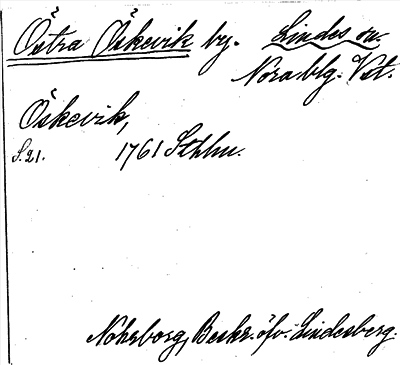 Östra Öskevik by. Lindes sn.
Nora blg. Vst.
Öskevik,
S. 21. 1761 Sthlm.
Nohrborg, Beskr. öfv. Lindesberg.